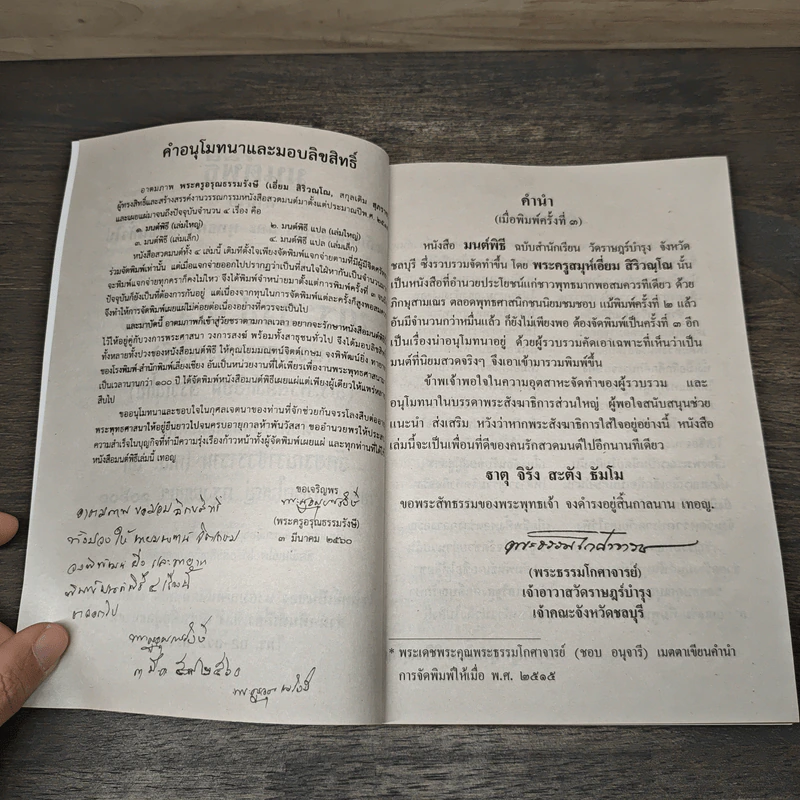 คำอนุโมทนาและมอบลิขสิทธิ์
อาตมภาพ พระครูอรุณธรรมรังษี (เอี่ยม สิริวณฺโณ, สกุลเดิม
ผู้ทรงสิทธิ์และสร้างสรรค์งานวรรณกรรมหนังสือสวดมนต์มาตั้งแต่ประมาณปีพ.ศ.
และเผยแผ่มาจนถึงปัจจุบันจำนวน ๔ เรื่อง คือ
๑. มนต์พิธี (เล่มใหญ่) ๒. มนต์พิธี แปล (เล่มใหญ่)
๓. มนต์พิธี (เล่มเล็ก) ๔. มนต์พิธี แปล (เล่มเล็ก)
หนังสือสวดมนต์ทั้ง ๔ เล่มนี้ เดิมทีตั้งใจเพียงจัดพิมพ์แจกจ่ายตามที่มีผู้มีจิตศรัทธา
ร่วมจัดพิมพ์เท่านั้น แต่เมื่อแจกจ่ายออกไปปรากฏว่าเป็นที่สนใจใฝ่หากันเป็นจำนวน
จะพิมพ์แจกจ่ายทุกคราก็คงไม่ไหว จึงได้พิมพ์จำหน่ายมาตั้งแต่การพิมพ์ครั้งที่ ๓ จน
ปัจจุบันก็ยังเป็นที่ต้องการกันอยู่ แต่เนื่องจากทุนในการจัดพิมพ์แต่ละครั้งก็สูง
จึงทำให้การจัดพิมพ์เผยแผ่ไม่ค่อยต่อเนื่องอย่างที่ควรจะเป็นไป
และมาบัดนี้ อาตมภาพก็เข้าสู่วัยชราตามกาลเวลา อยากจะรักษาหนังสือมนต์พิธี
ไว้ให้อยู่คู่กับวงการพระศาสนา วงการสงฆ์ พร้อมทั้งสาธุชนทั่วไป จึงได้มอบลิขสิทธิ์
ทั้งหลายทั้งปวงของหนังสือมนต์พิธี ให้คุณโยมมณฑน์จิตต์เกษม จงพิพัฒน์ยิ่ง ทายาท
ของโรงพิมพ์-สำนักพิมพ์เลี่ยงเชียง อันเป็นหน่วยงานที่ได้เพียรเพื่องานพระพุทธศาสนา
เป็นเวลานานกว่า ๑๐๐ ปี ได้จัดพิมพ์หนังสือมนต์พิธีเผยแผ่แต่เพียงผู้เดียวให้แพร่หลาย
สืบไป
ขออนุโมทนาและขอบใจในกุศลเจตนาของท่านที่จักช่วยกันจรรโลงสืบต่ออายุ
พระพุทธศาสนาให้อยู่ยืนยาวไปจนครบอายุกาลห้าพันวัสสา ขออำนวยพรให้ประสบ
ความสำเร็จในบุญกิจที่ทำมีความรุ่งเรืองก้าวหน้าทั้งผู้จัดพิมพ์เผยแผ่ และทุกท่านที่ได้ใช้
หนังสือมนต์พิธีเล่มนี้ เทอญ
ขอเจริญพร
(พระครูอรุณธรรมรังษี)
๓ มีนาคม ๒๕๖๐
อาตมภาพ ขอมอบลิขสิทธิ์
ทั้งปวง ให้
จงพิพัฒน์ยิ่ง และทายาท
พิมพ์มนต์พิธี ๔ เรื่องนี้
ตลอดไป
คำนำ
(เมื่อพิมพ์ครั้งที่ ๓)
หนังสือ มนต์พิธี ฉบับสำนักเรียน วัดราษฎร์บำรุง จังหวัด
ชลบุรี ซึ่งรวบรวมจัดทำขึ้น โดย พระครูสมุห์เอี่ยม สิริวณฺโณ นั้น
เป็นหนังสือที่อำนวยประโยชน์แก่ชาวพุทธมากพอสมควรทีเดียว ด้วย
ภิกษุสามเณร ตลอดพุทธศาสนิกชนนิยมชมชอบ แม้พิมพ์ครั้งที่ ๒ แล้ว
อันมีจำนวนกว่าหมื่นแล้ว ก็ยังไม่เพียงพอ ต้องจัดพิมพ์เป็นครั้งที่ ๓ อีก
เป็นเรื่องน่าอนุโมทนาอยู่ ด้วยผู้รวบรวมคัดเอาเฉพาะที่เห็นว่าเป็น
มนต์ที่นิยมสวดจริงๆ จึงเอาเข้ามารวมพิมพ์ขึ้น
ข้าพเจ้าพอใจในความอุตสาหะจัดทำของผู้รวบรวม และ
อนุโมทนาในบรรดาพระสังฆาธิการส่วนใหญ่ ผู้พอใจสนับสนุนช่วย
แนะนำ ส่งเสริม หวังว่าหากพระสังฆาธิการใส่ใจอยู่อย่างนี้ หนังสือ
เล่มนี้จะเป็นเพื่อนที่ดีของคนรักสวดมนต์ไปอีกนานทีเดียว
ธาตุ จิรัง สะตัง ธัมโม
ขอพระสัทธรรมของพระพุทธเจ้า จงดำรงอยู่สิ้นกาลนาน เทอญ.
(พระธรรมโกศาจารย์)
เจ้าอาวาสวัดราษฎร์บำรุง
เจ้าคณะจังหวัดชลบุรี
* พระเดชพระคุณพระธรรมโกศาจารย์ (ชอบ อนุจารี) เมตตาเขียนคำนำ
การจัดพิมพ์ให้เมื่อ พ.ศ. ๒๕๑๕